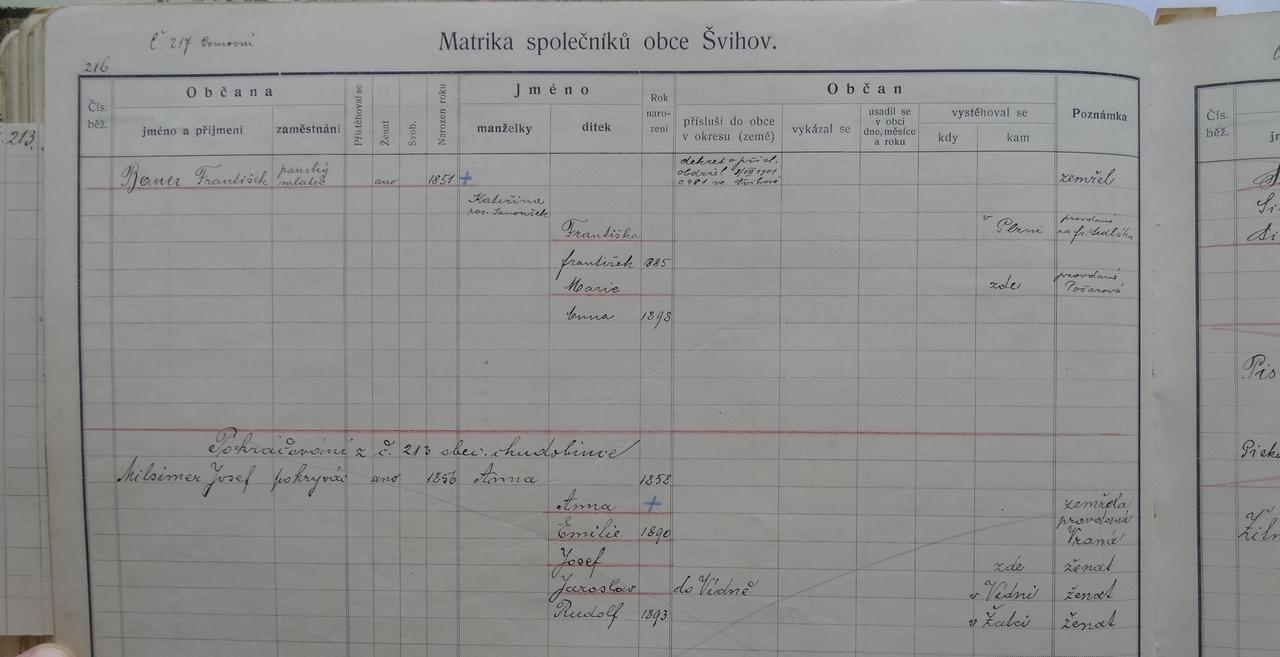 č. 217 Domovní
Matrika společníků obce Švihov.
216
213.
Čís. běž.
Občana
jméno a příjmení
zaměstnání
Přistěhoval se
Ženat
Svob.
Narozen roku
Jméno
manželky
dítek
Rok naro- zení
Občan
přísluší do obce v okresu (země)
vykázal se
usadil se v obci dne, měsíce a roku
vystěhoval se
kdy
kam
Poznámka
František panský mlateč ano 1851 + dekret o přísl. obdržel 1901 č 481 ve Švihově zemřel
Kateřina
roz. Janoušek
Františka v Plzni provdaná za fr. Sedláka
františek 1885
Marie zde provdaná
Anna 1898
Pokračování z č. 213 obec. chudobinec
Milsimer Josef pokrývač ano 1856 Anna 1858
Anna + zemřela
Emilie 1890 provdaná Vraná
Josef zde ženat
Jaroslav do Vídně v Vídni ženat
Rudolf 1893 v Žatci ženat
Čís. běž.